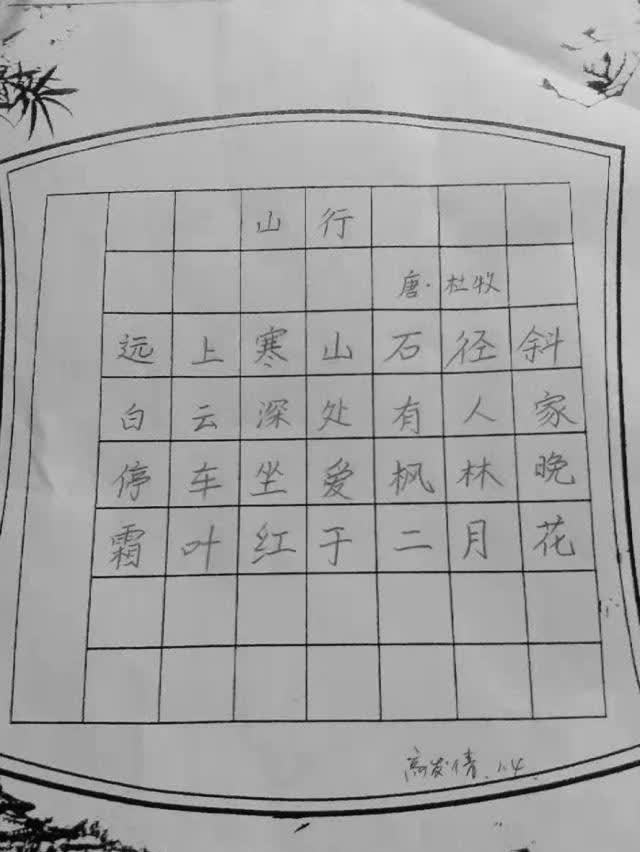 山行
唐·杜牧
远上寒山石径斜
白云深处有人家
停车坐爱枫林晚
霜叶红于二月花